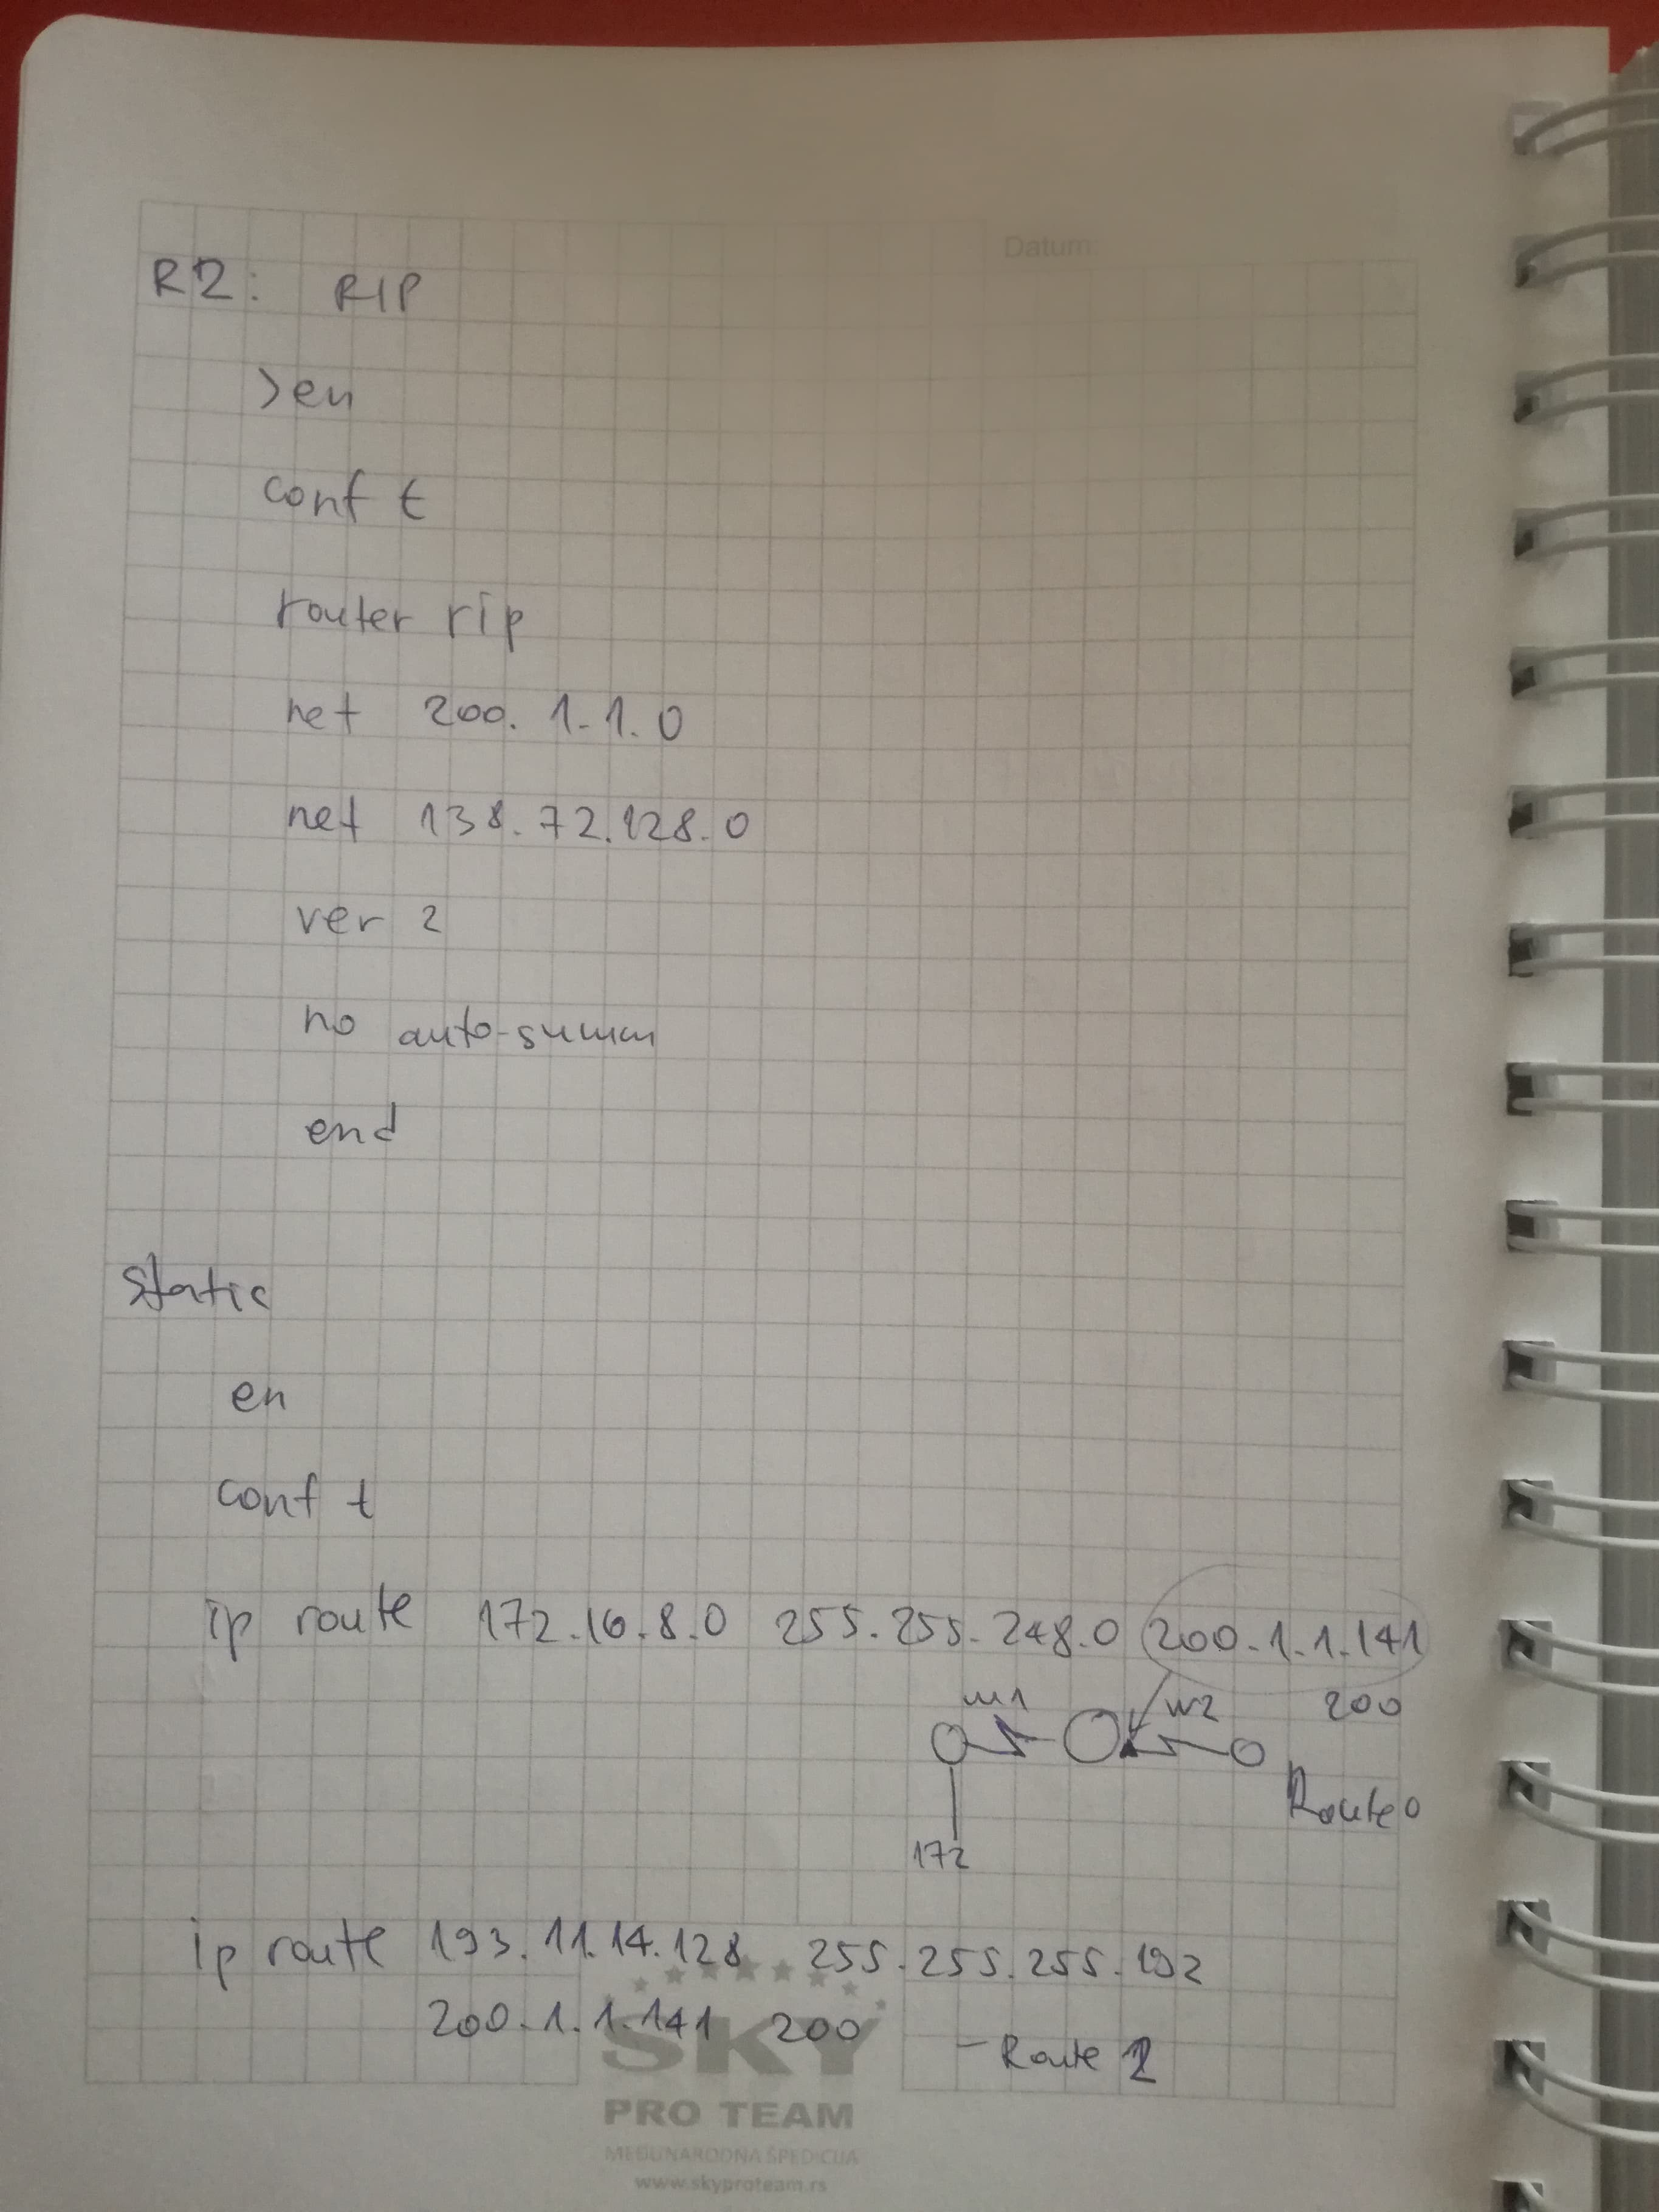 Datum:
R2: RIP
>en
conf t
router rip
net 200.1.1.0
net 138.72.128.0
ver 2
no auto-summ
end
Static
en
conf t
ip route 172.16.8.0 255.255.248.0 200.1.1.141
200
W1 W2
Route 0
172
ip route 193.11.14.128 255.255.255.192
200.1.1.141 200
- Route 2
SKY
PRO TEAM
MEĐUNARODNA ŠPEDICIJA
www.skyproteam.rs